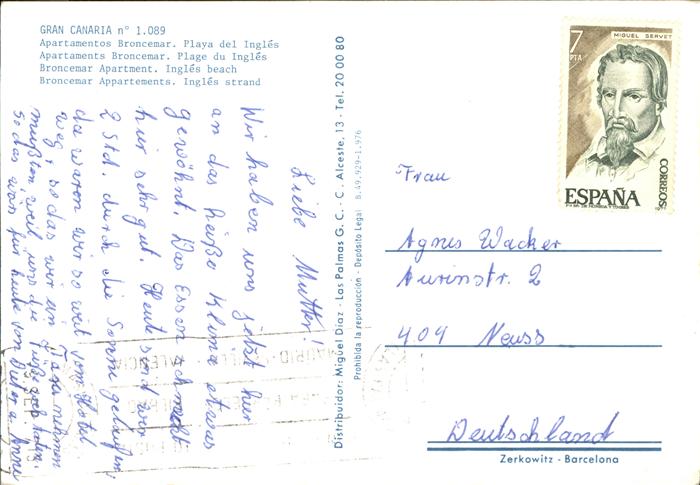 GRAN CANARIA nº 1.089
Apartamentos Broncemar. Playa del Inglés
Apartaments Broncemar. Plage du Inglés
Broncemar Apartment. Inglés beach
Broncemar Appartements. Inglés strand
Liebe Mutter!
Wir haben uns jetzt hier
an das heiße Klima etwas
gewöhnt. Das Essen schmeckt
hier sehr gut. Heute sind wir
2 Std. durch die Sonne gelaufen,
da waren wir so weit vom Hotel
weg, so das wir ein Taxi nehmen
mußten, weil uns die Füße
so das wars für heute von Dieter u.
Distribuidor: Miguel Díaz - Las Palmas G. C. - C. Alceste, 13 - Tel. 20 00 80
Prohibida la reproducción - Depósito Legal B. 49.929-1.976
MIGUEL SERVET
7
PTA
CORREOS
ESPAÑA
Frau
Agnes Wacker
Aurinstr. 2
404 Neuss
Deutschland
Zerkowitz - Barcelona